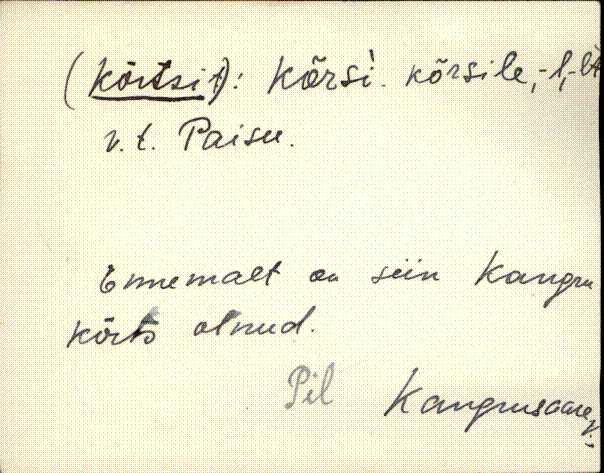 (kõrtsi t): Kõrsì. kõrsile, -l, -lt
v. t. Paisu.
Ennemalt on siin Kangru
kõrts olnud.
Pil Kangrusaare
v.